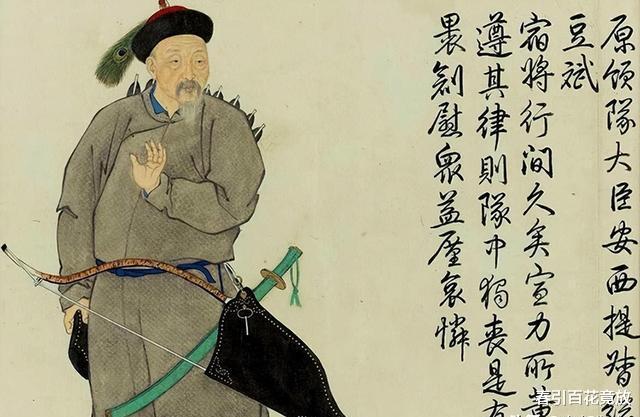 原領隊大臣安西提督
豆斌
宿將行間久矣宣力所
遵其律則隊中獨喪是
裹創慰衆益廑哀憐
春引百花竟放